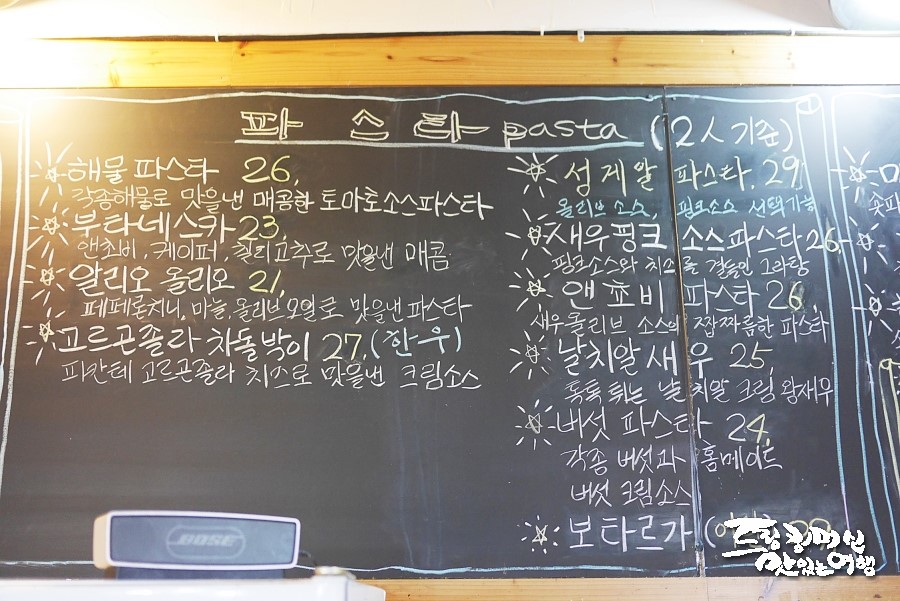 파스타 pasta (2人 기준)
해물 파스타 26,
각종해물로 맛을낸 매콤한 토마토소스파스타
부타네스카 23,
앤초비, 케이퍼, 칠리고추로 맛을낸 매콤
알리오 올리오 21,
페페론치니, 마늘, 올리브오일로 맛을낸 파스타
고르곤졸라 차돌박이 27, (한우)
피칸테 고르곤졸라 치즈로 맛을낸 크림소스
성게알 파스타. 29,
올리브 소스, 핑크소스 선택가능
새우핑크 소스파스타 26,
핑크소스와 치즈를 곁들인 그라탕
앤쵸비 파스타 26,
새우올리브 소스의 짭짜름한 파스타
날치알새우 25,
톡톡 튀는 날치알 크림 왕새우
버섯 파스타 24,
각종 버섯과 홈메이드
버섯 크림소스
보타르가
BOSE
맛있는여행